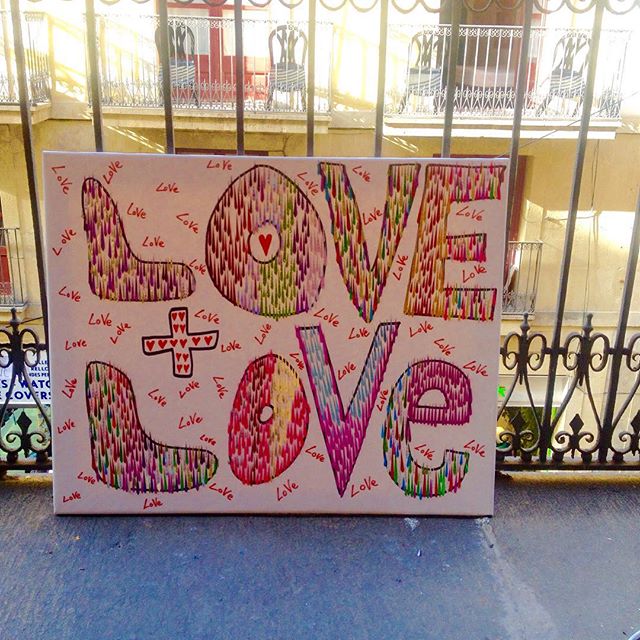 Love Love Love Love Love
Love Love Love
LOVE
Love Love Love Love
Love Love Love
Love Love Love
Love Love Love Love
Love Love Love Love
+
Love Love Love Love
Love Love Love Love
Love Love Love
LOVe
Love Love Love
Love Love Love
Love Love Love Love
Love Love